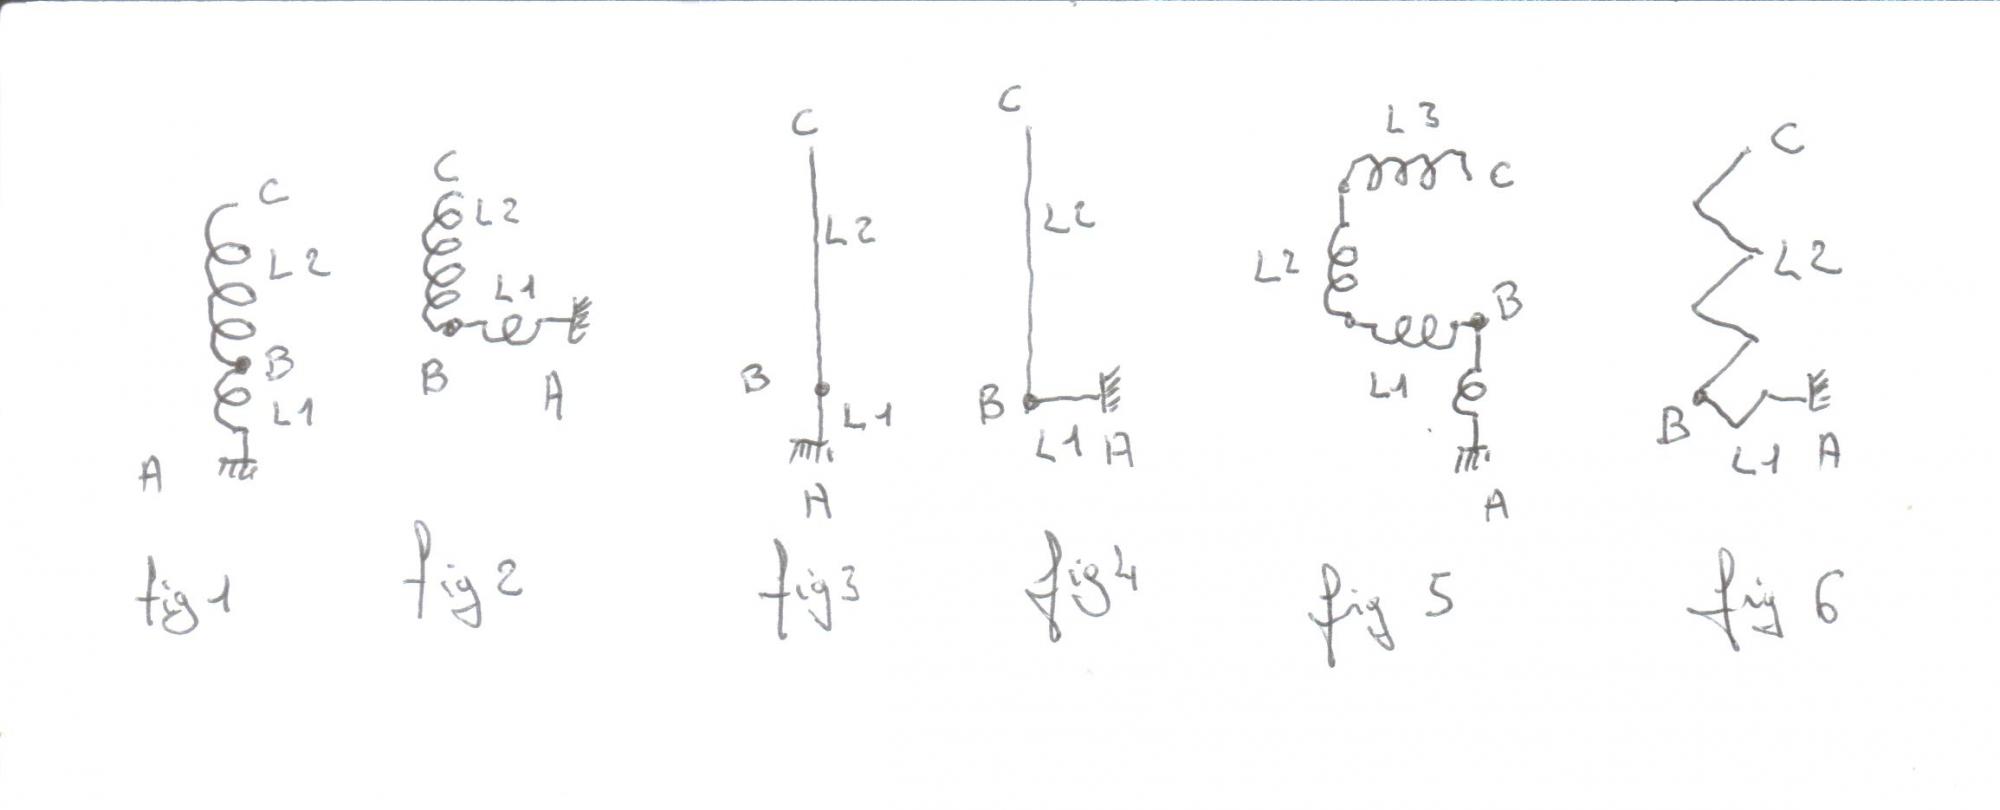 C
L2
B
L1
A
fig 1
C
L2
L1
B
A
fig 2
C
L2
B
L1
A
fig 3
C
L2
B
L1 A
fig 4
L3
C
L2
B
L1
A
fig 5
C
L2
B
L1 A
fig 6